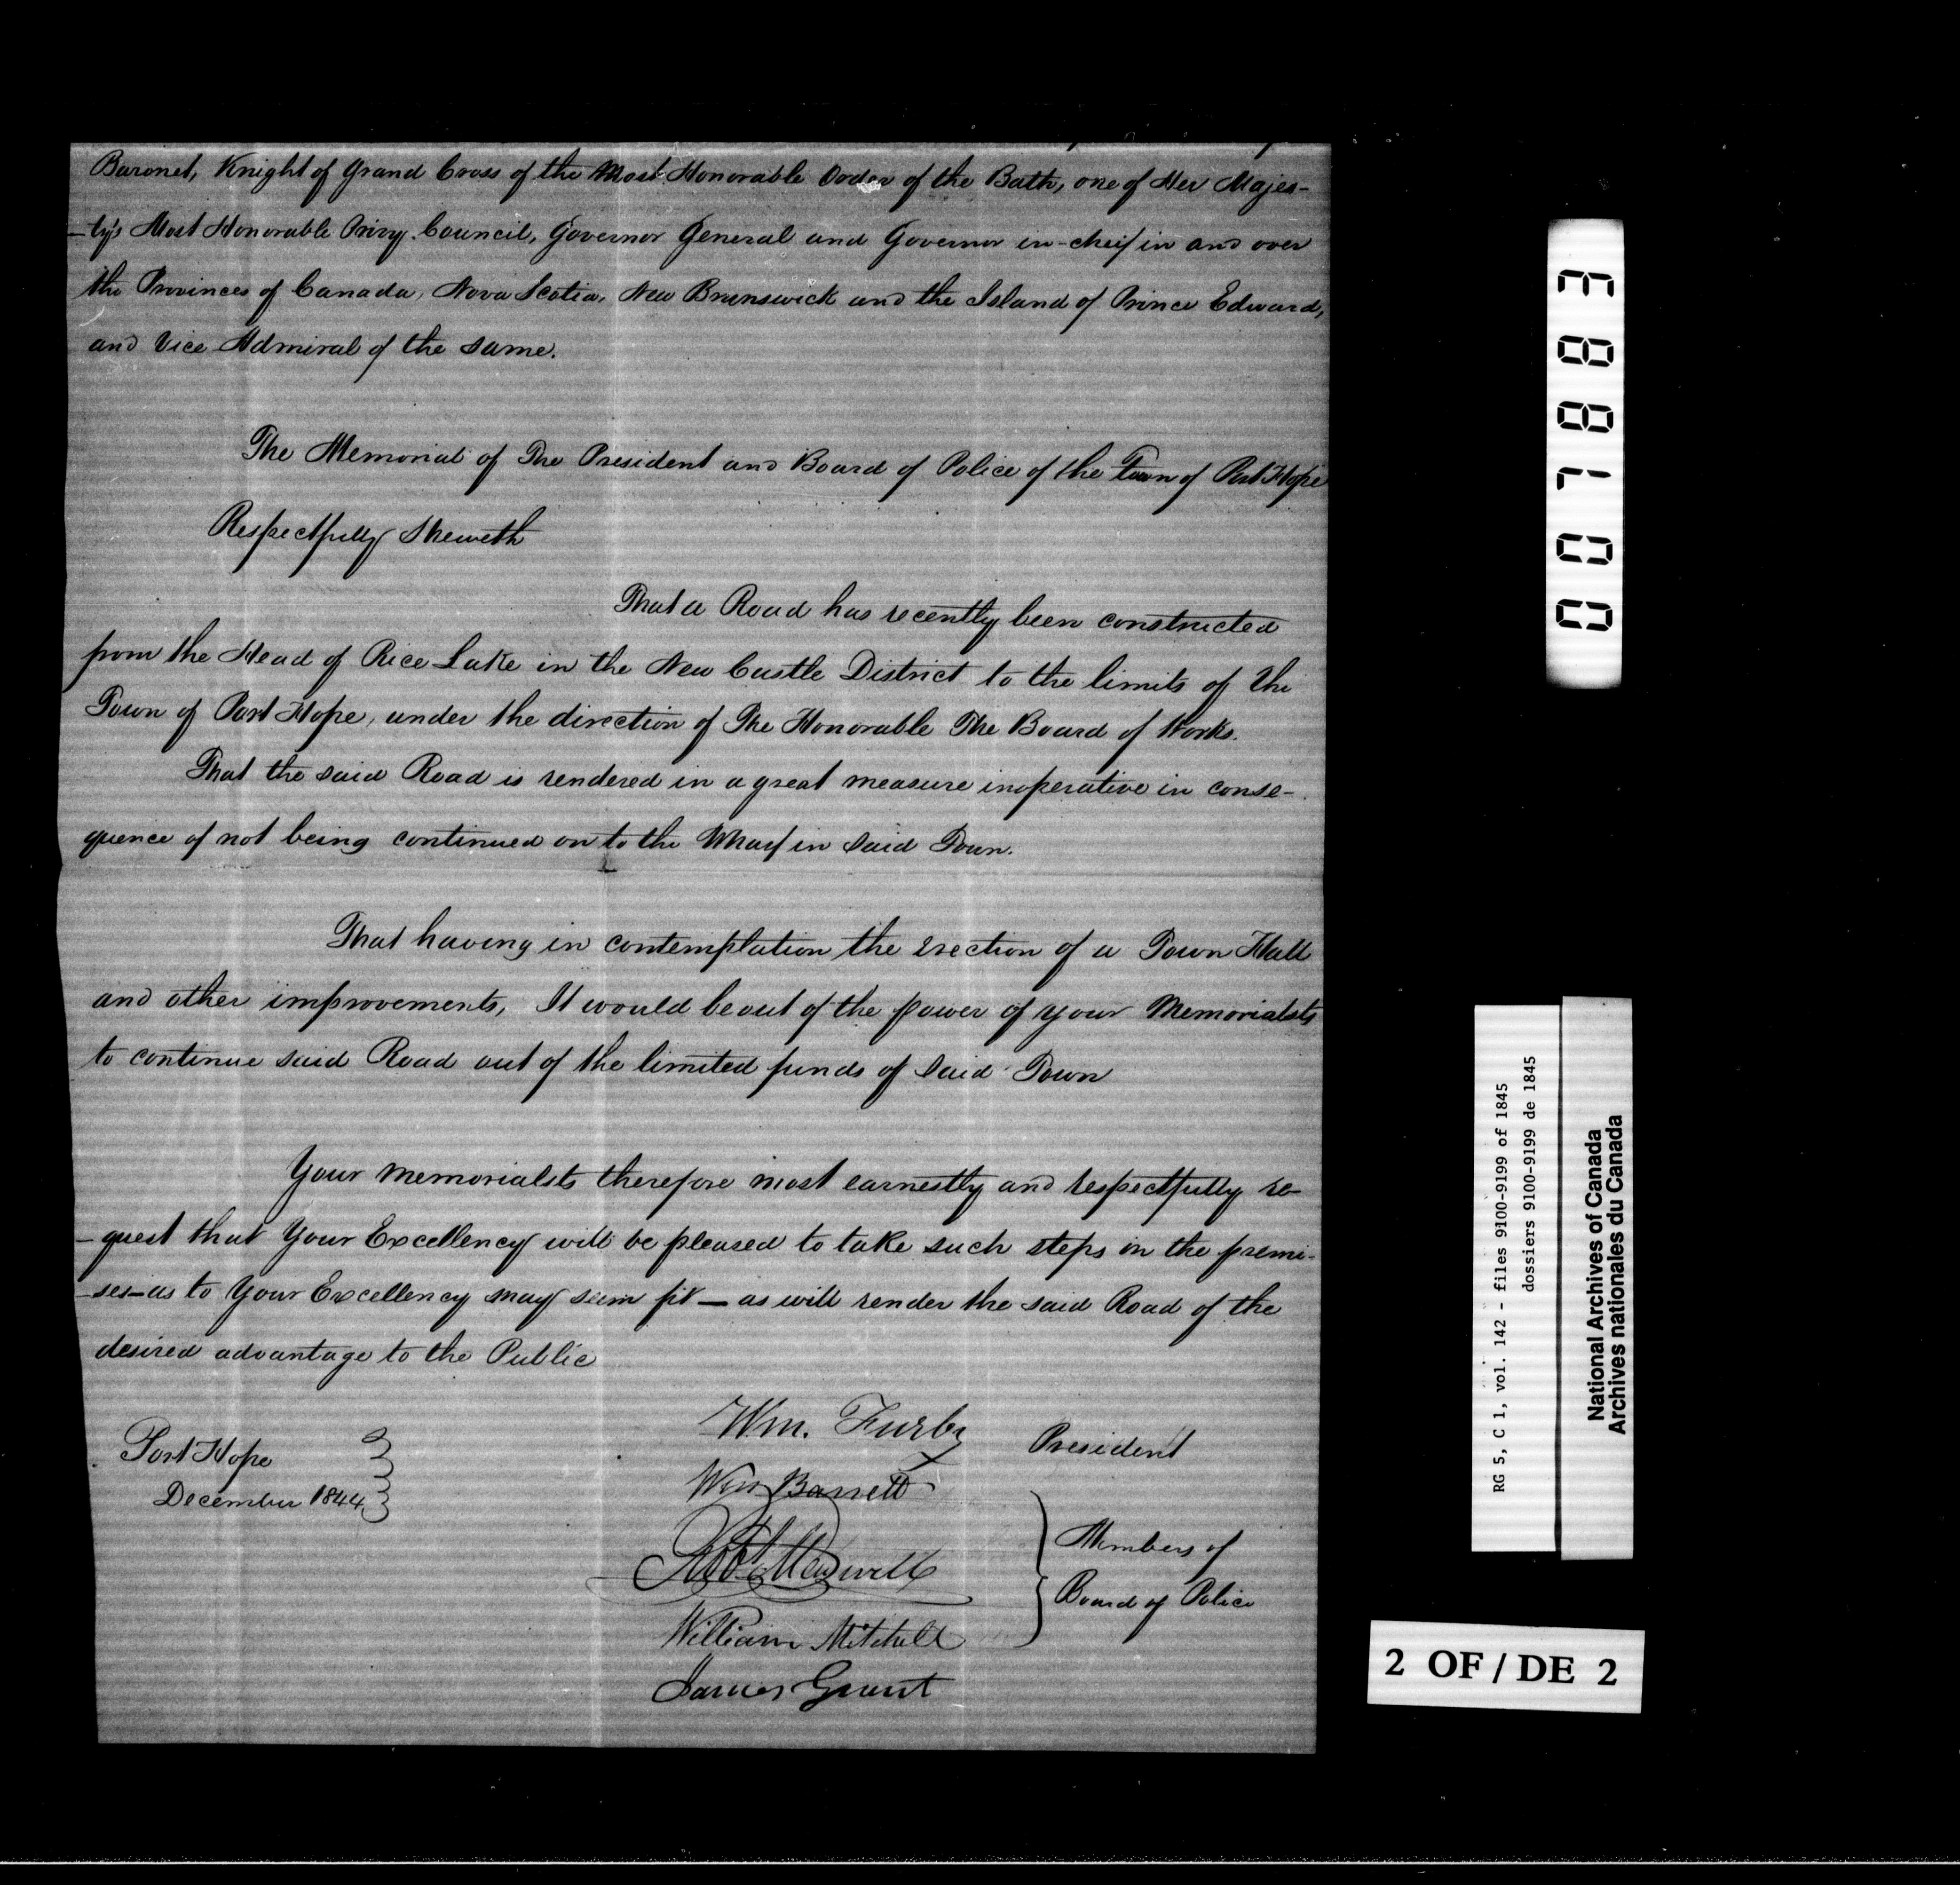 Baronet, Knight of Grand Cross of the Most Honorable Order of the Bath, one of Her Majes-
-ty's Most Honorable Privy Council, Governor General and Governor in-cheif in and over
the Provinces of Canada, Nova Scotia, New Brunswick and the Island of Prince Edward,
and Vice Admiral of the same.
The Memorial of The President and Board of Police of the Town of Port Hope
Respectfully Sheweth
That a Road has recently been constructed
from the Head of Rice Lake in the New Castle District to the limits of the
Town of Port Hope, under the direction of The Honorable The Board of Works.
That the said Road is rendered in a great measure inoperative in conse-
quence of not being continued on to the Wharf in said Town.
That having in contemplation the erection of a Town Hall
and other improvements, It would be out of the power of your Memorialists
to continue said Road out of the limited funds of said Town
Your Memorialists therefore most earnestly and respectfully re-
-quest that Your Excellency will be pleased to take such steps in the premi-
-ses—as to Your Excellency may seem fit — as will render the said Road of the
desired advantage to the Public
Port Hope
December 1844
Wm. Furby President
Wm Barrett
Robt Maxwell
William Mitchell
James Grant
Members of
Board of Police
0 0 7 8 8 3
RG 5, C 1, vol. 142 - files 9100-9199 of 1845
dossiers 9100-9199 de 1845
National Archives of Canada
Archives nationales du Canada
2 OF / DE 2